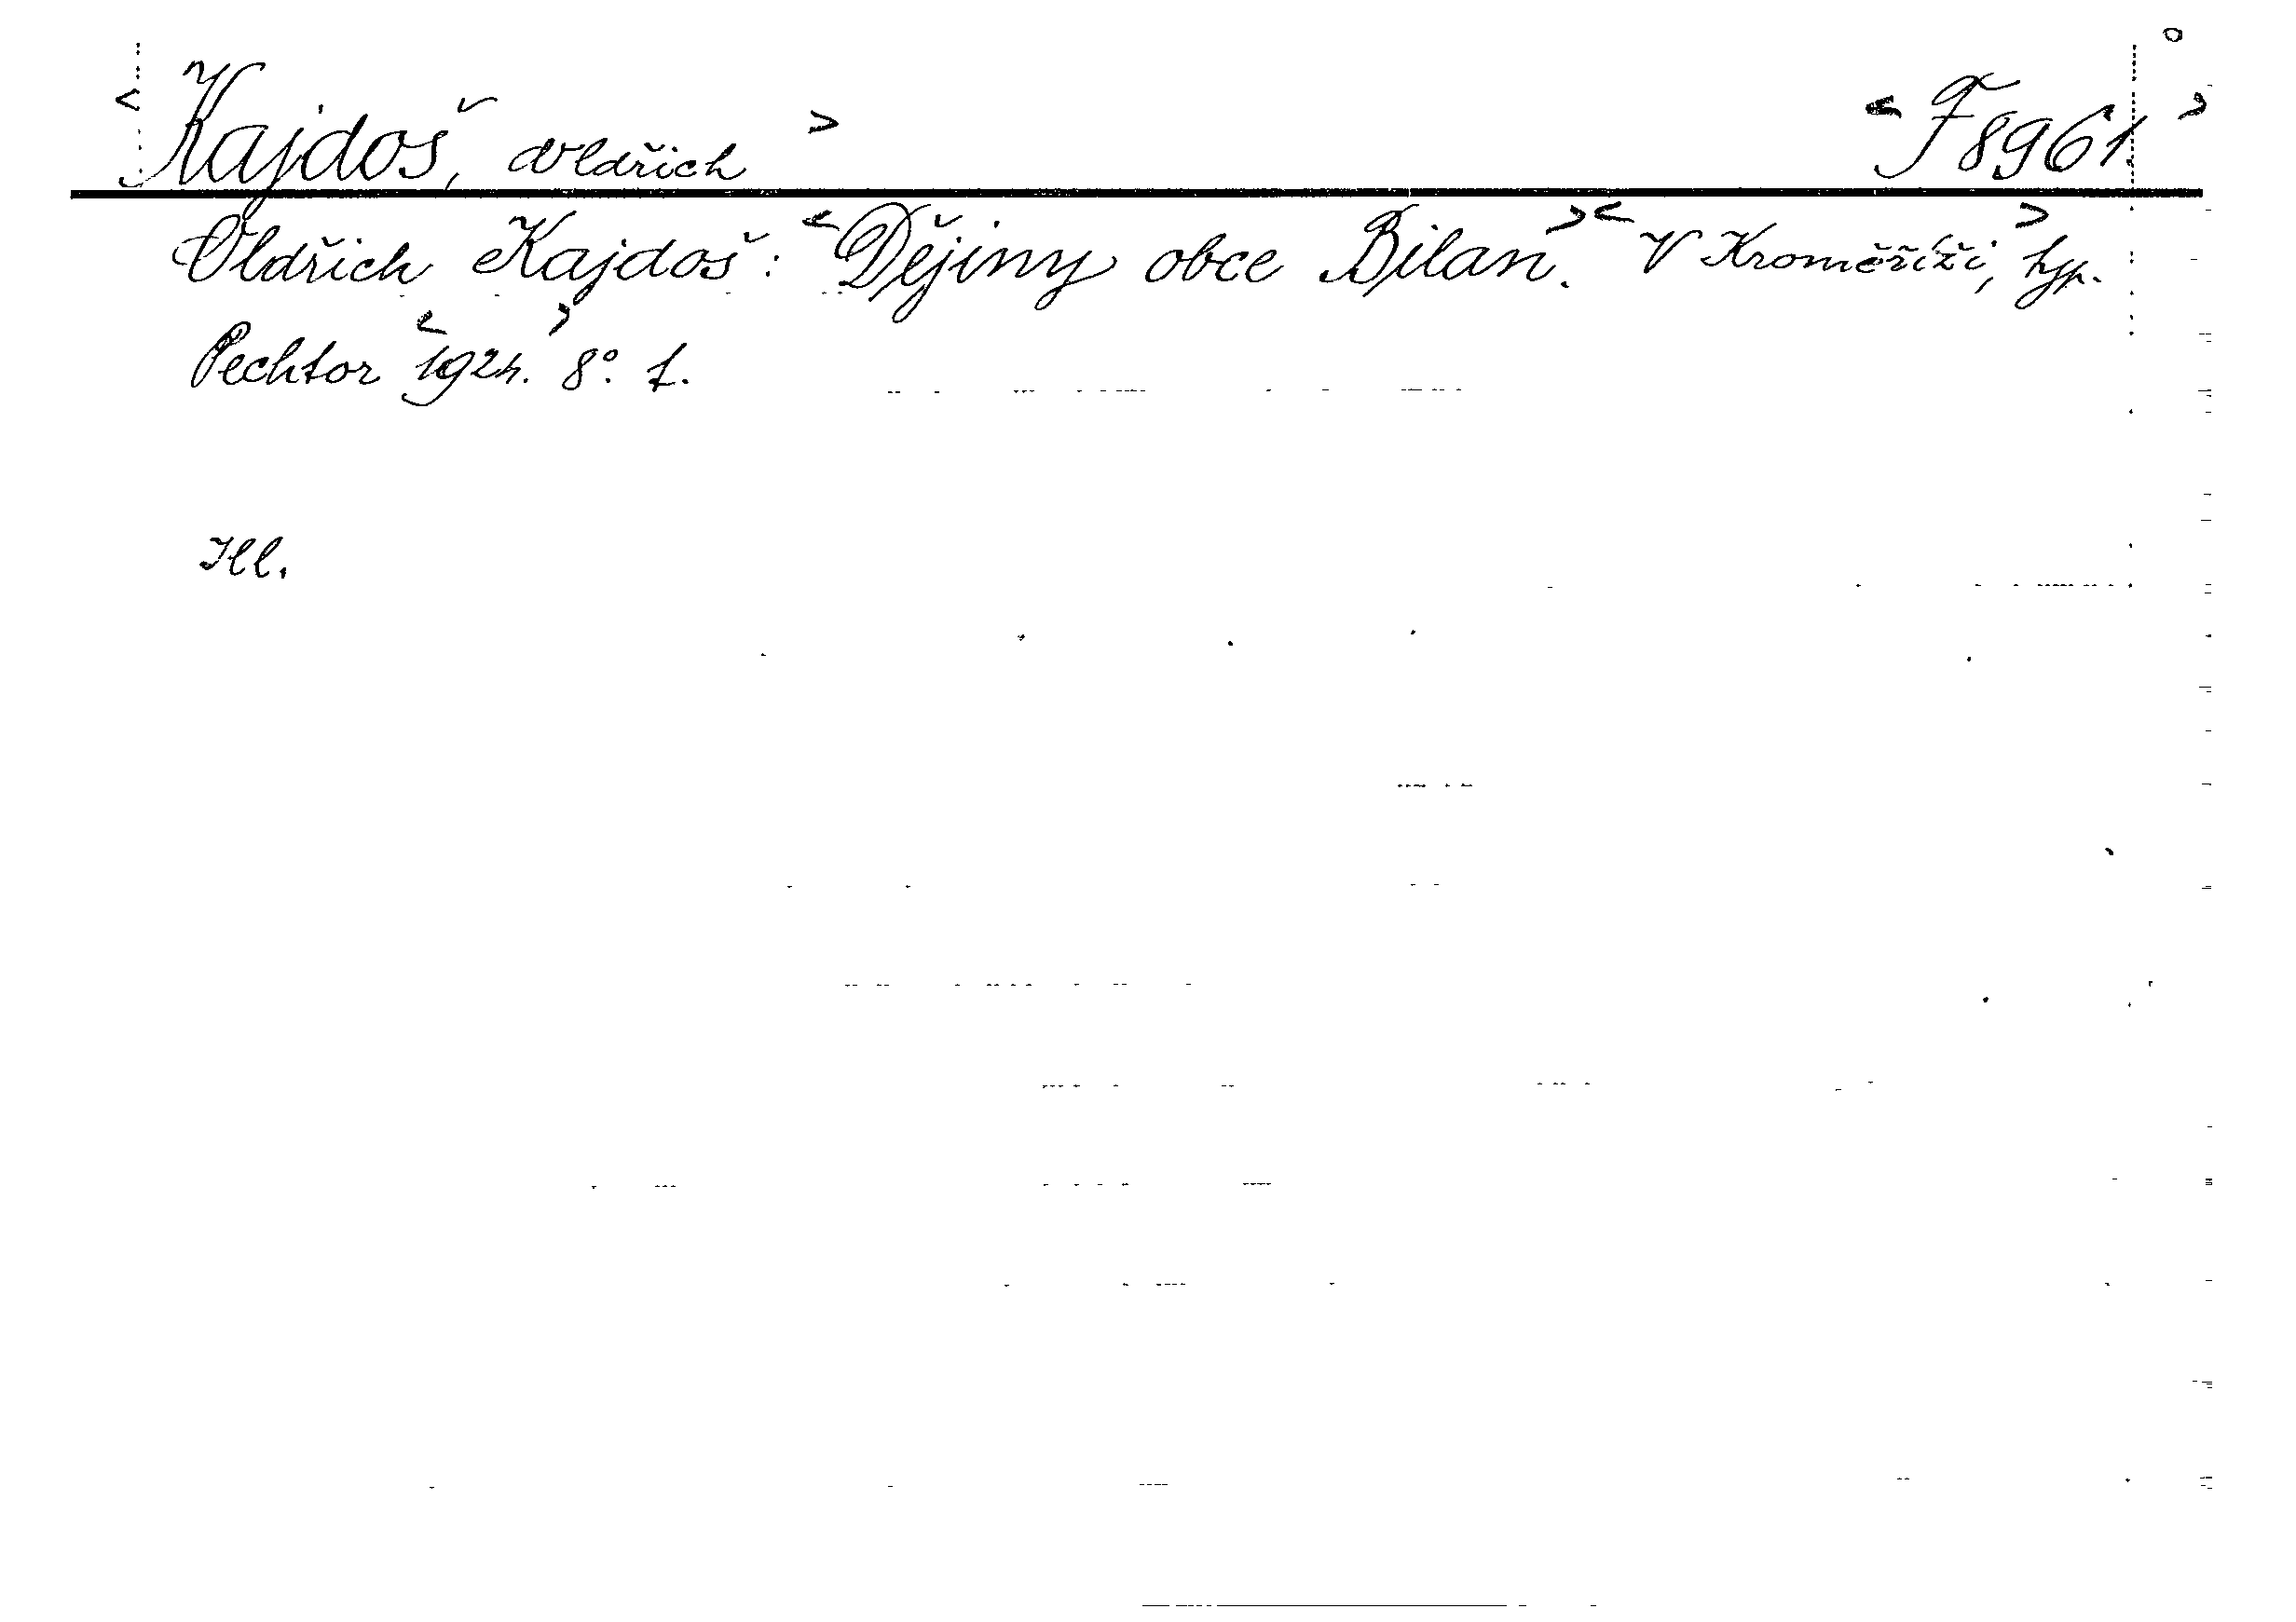 <Kajdoš, Oldřich> <F 8961.>
Oldřich Kajdoš: <Dějiny obce Bilan.> <V Kroměříži,> typ.
Pechtor <1924.> 8°. f.
Ill.